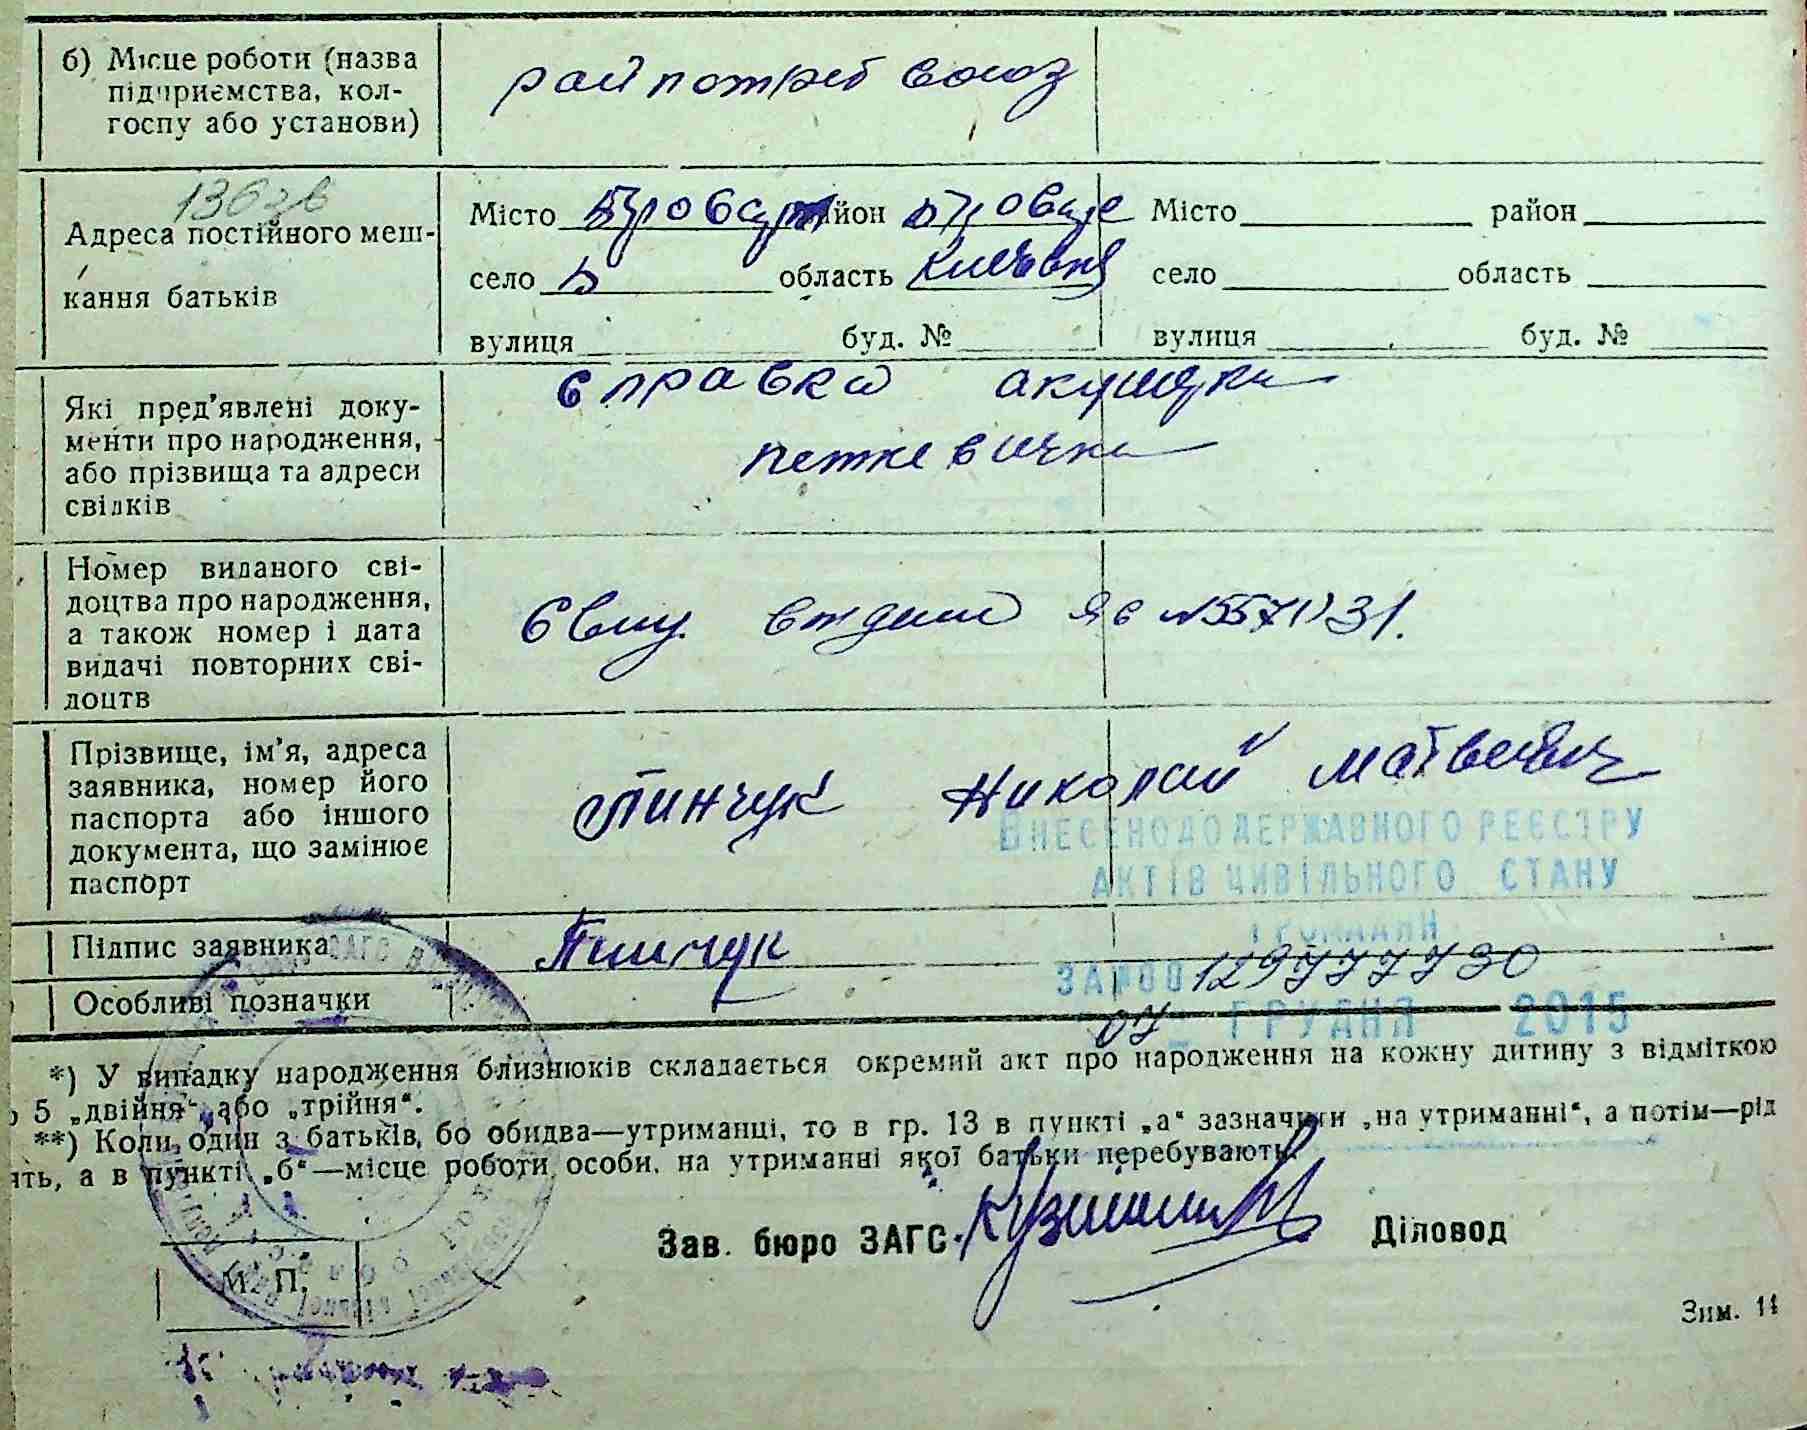 б) Місце роботи (назва
підприємства, кол-
госпу або установи)
райпотребсоюз
Адреса постійного меш-
кання батьків
Місто Бровари район Бровар Місто район
село область Киевская село область
вулиця буд. № вулиця буд. №
Які пред'явлені доку-
менти про народження,
або прізвища та адреси
свідків
справка акушерки
Петкевички
Номер виданого сві-
доцтва про народження,
а також номер і дата
видачі повторних сві-
доцтв
Прізвище, ім'я, адреса
заявника, номер його
паспорта або іншого
документа, що замінює
паспорт
Пинчук Николай Матвеевич
ВНЕСЕНО ДО ДЕРЖАВНОГО РЕЄСТРУ
АКТІВ ЦИВІЛЬНОГО СТАНУ
ГРОМАДЯН
Підпис заявника Пинчук
Особливі позначки
ГРУДНЯ 2015
*) У випадку народження близнюків складається окремий акт про народження на кожну дитину з відміткою
5 „двійня“ або „трійня“.
**) Коли один з батьків, бо обидва—утриманці, то в гр. 13 в пункті „а“ зазначити „на утриманні“, а потім—рід
ять, а в пункті „б“—місце роботи особи, на утриманні якої батьки перебувають.
Зав. бюро ЗАГС Діловод
М. П.
Зим. 14